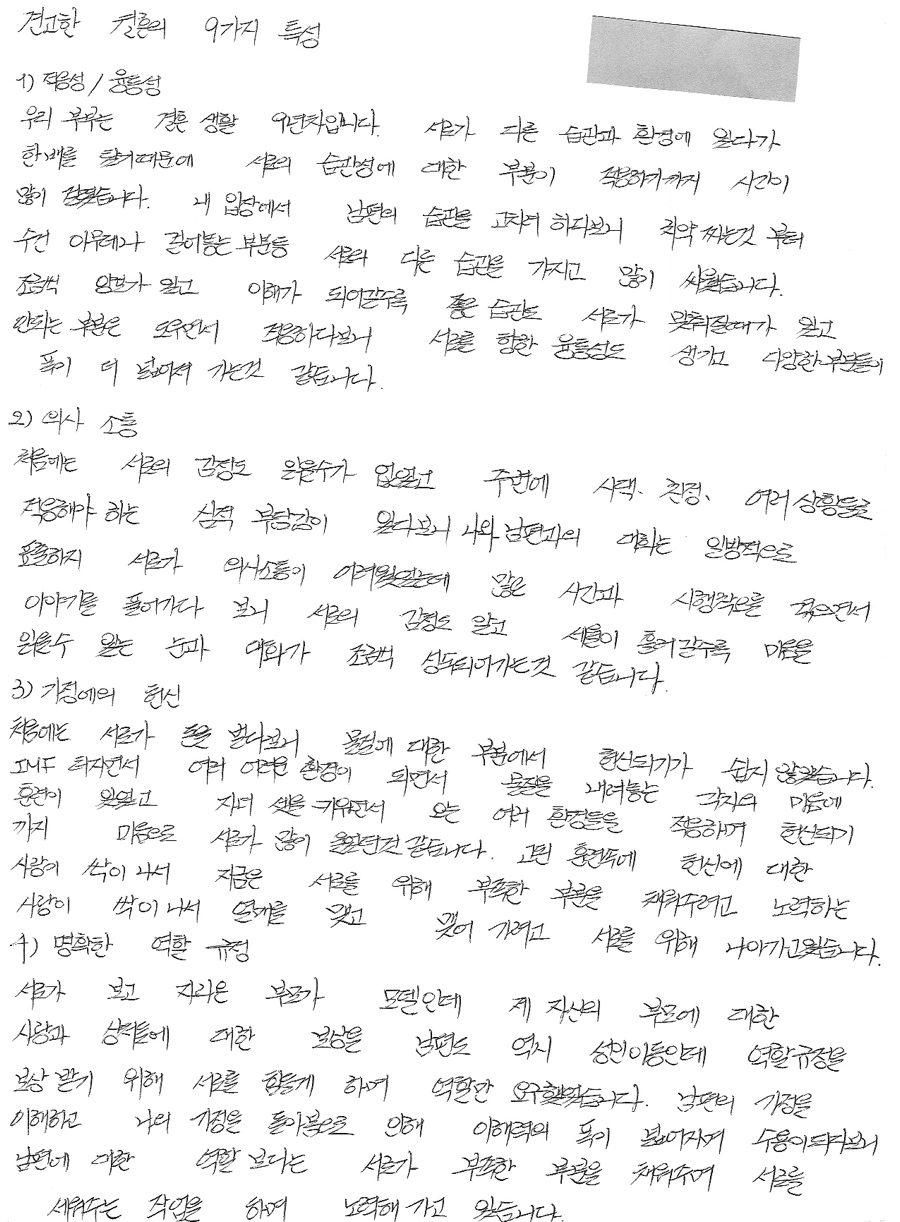 견고한 결혼의 9가지 특성
1) 적응성 / 융통성
우리 부부는 결혼 생활 9년차입니다. 서로가 다른 습관과 환경에 있다가
한배를 탔기때문에 서로의 습관성에 대한 부분이 적응하기까지 시간이
많이 걸렸습니다. 내 입장에서 남편의 습관을 고치려 하다보니 치약 짜는것 부터
수건 아무데나 걸어놓는 부분등 서로의 다른 습관을 가지고 많이 싸웠습니다.
조금씩 양보가 있고 이해가 되어갈수록 좋은 습관도 서로가 맞춰질때가 있고
안되는 부분은 도우면서 적응하다보니 서로를 향한 융통성도 생기고 다양한 부분들이
폭이 더 넓어져 가는것 같습니다.
2) 의사 소통
처음에는 서로의 감정도 읽을수가 없었고 주변에 시댁, 친정, 여러 상황들로
적응해야 하는 심적 부담감이 있다보니 나와 남편과의 대화는 일방적으로
표출하지 서로가 의사소통이 어려웠었는데 많은 시간과 시행착오를 겪으면서
이야기를 풀어가다 보니 서로의 감정도 알고 세월이 흘러갈수록 마음을
읽을수 있는 눈과 대화가 조금씩 성투되어가는것 같습니다.
3) 가정에의 헌신
처음에는 서로가 돈을 벌다보니 물질에 대한 부분에서 헌신되기가 쉽지 않았습니다.
IMF 터지면서 여러 어려운 환경이 되면서 물질을 내려놓는 각자의 마음에
훈련이 있었고 자녀 셋을 키우면서 오는 여러 환경들을 적응하며 헌신되기
까지 마음으로 서로가 많이 울었던것 같습니다. 고된 훈련속에 헌신에 대한
사랑이 싹이 나서 지금은 서로를 위해 부족한 부분을 채워주려고 노력하는
사랑이 싹이 나서 열매를 맺고 맺어 가려고 서로를 위해 나아가고있습니다.
4) 명확한 역할 규정
서로가 보고 자라온 부모가 모델인데 제 자신의 부모에 대한
사랑과 상처들에 대한 보상을 남편도 역시 성인아이등인데 역할규정을
보상 받기 위해 서로를 힘들게 하며 역할만 요구했었습니다. 남편의 가정을
이해하고 나의 가정을 돌아봄으로 인해 이해력의 폭이 넓어지게 수용이되다보니
남편에 대한 역할 보다는 서로가 부족한 부분을 채워주며 서로를
세워주는 작업을 하며 노력해 가고 있습니다.